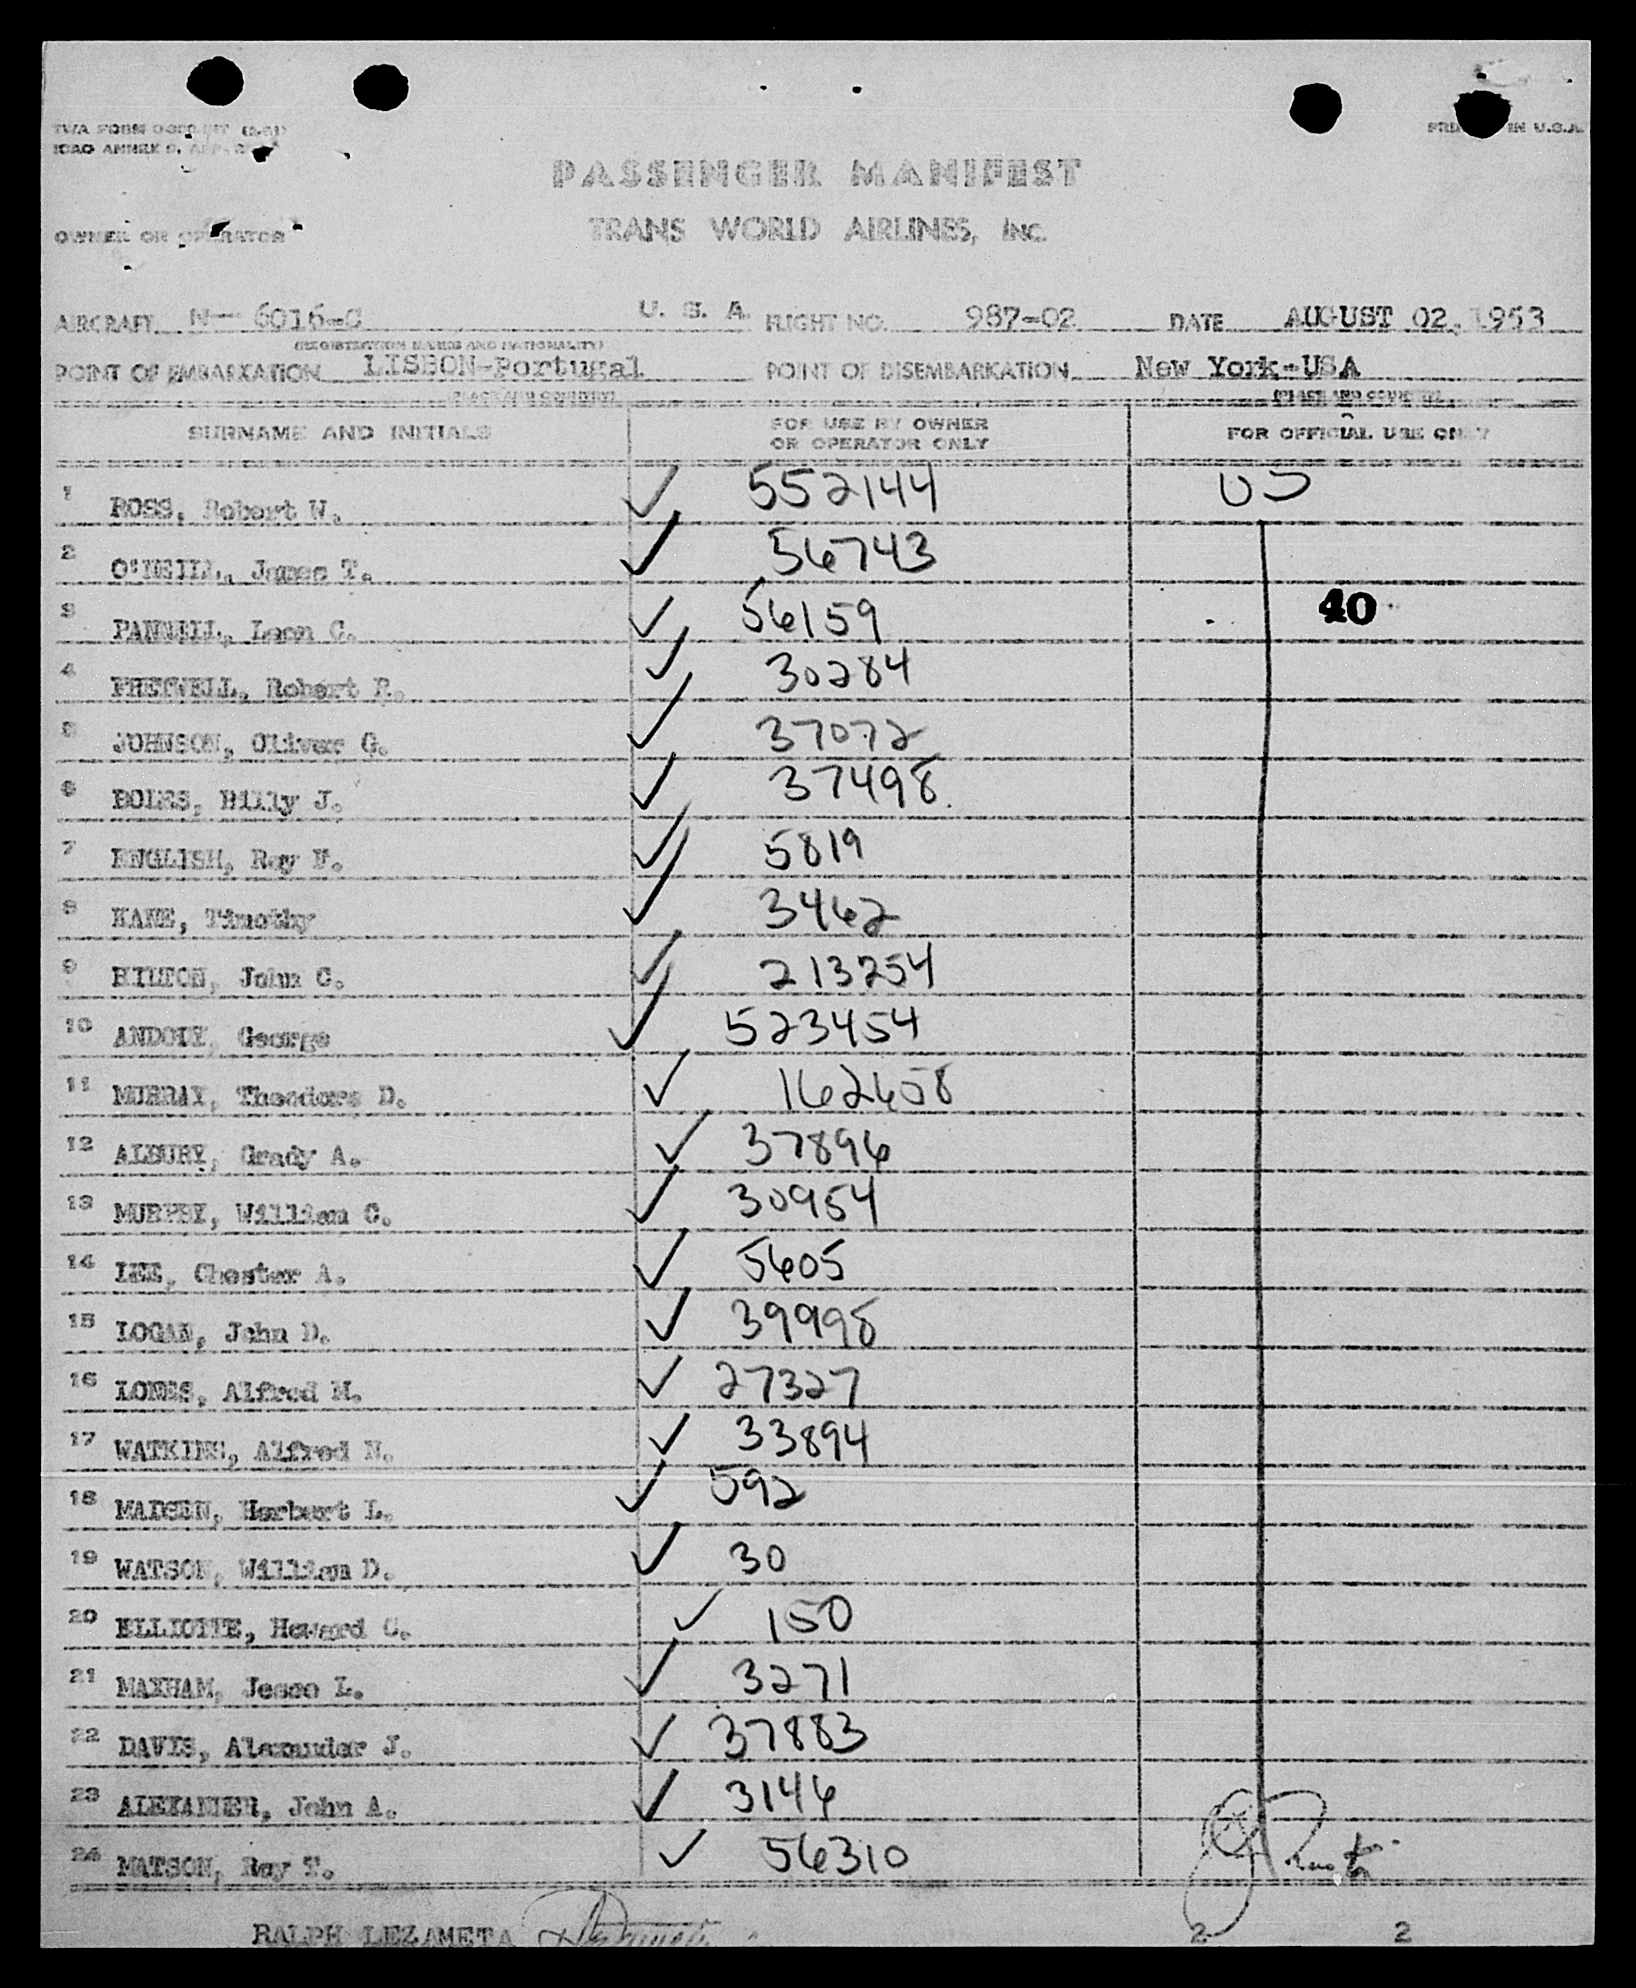 PASSENGER MANIFEST
TRANS WORLD AIRLINES, INC.
OWNER OR OPERATOR
PRINTED IN U.S.A.
AIRCRAFT N- 6016-C U. S. A. FLIGHT NO. 987-02 DATE AUGUST 02, 1953
(REGISTRATION MARKS AND NATIONALITY)
POINT OF EMBARKATION LISBON-Portugal POINT OF DISEMBARKATION New York-USA
(PLACE AND COUNTRY) (PLACE AND COUNTRY)
SURNAME AND INITIALS FOR USE BY OWNER OR OPERATOR ONLY FOR OFFICIAL USE ONLY
1 ROSS, Robert W. ✓ 552144 US
2 O'NEILL, James T. ✓ 56743
3 PANNELL, Leon C. ✓ 56159 40
4 Robert ✓ 30284
5 JOHNSON, Oliver G. ✓ 37072
6 BOLES, Billy J. ✓ 37498
7 ENGLISH, Ray ✓ 5819
8 KANE, Timothy ✓ 3462
9 HILTON, John C. ✓ 213254
10 George ✓ 523454
11 MURRAY, Theodore D. ✓ 162658
12 ALBURY, Grady A. ✓ 37896
13 MURPHY, William C. ✓ 30954
14 LEE, Chester A. ✓ 5605
15 LOGAN, John D. ✓ 39998
16 Alfred M. ✓ 27327
17 WATKINS, Alfred N. ✓ 33894
18 MADSEN, Herbert L. ✓ 592
19 WATSON, William D. ✓ 30
20 ELLIOTTE, Howard C. ✓ 150
21 MAXHAM, Jesse L. ✓ 3271
22 DAVIS, Alexander J. ✓ 37883
23 ALEXANDER, John A. ✓ 3146
24 MATSON, Ray T. ✓ 56310
RALPH LEZAMETA 2 2